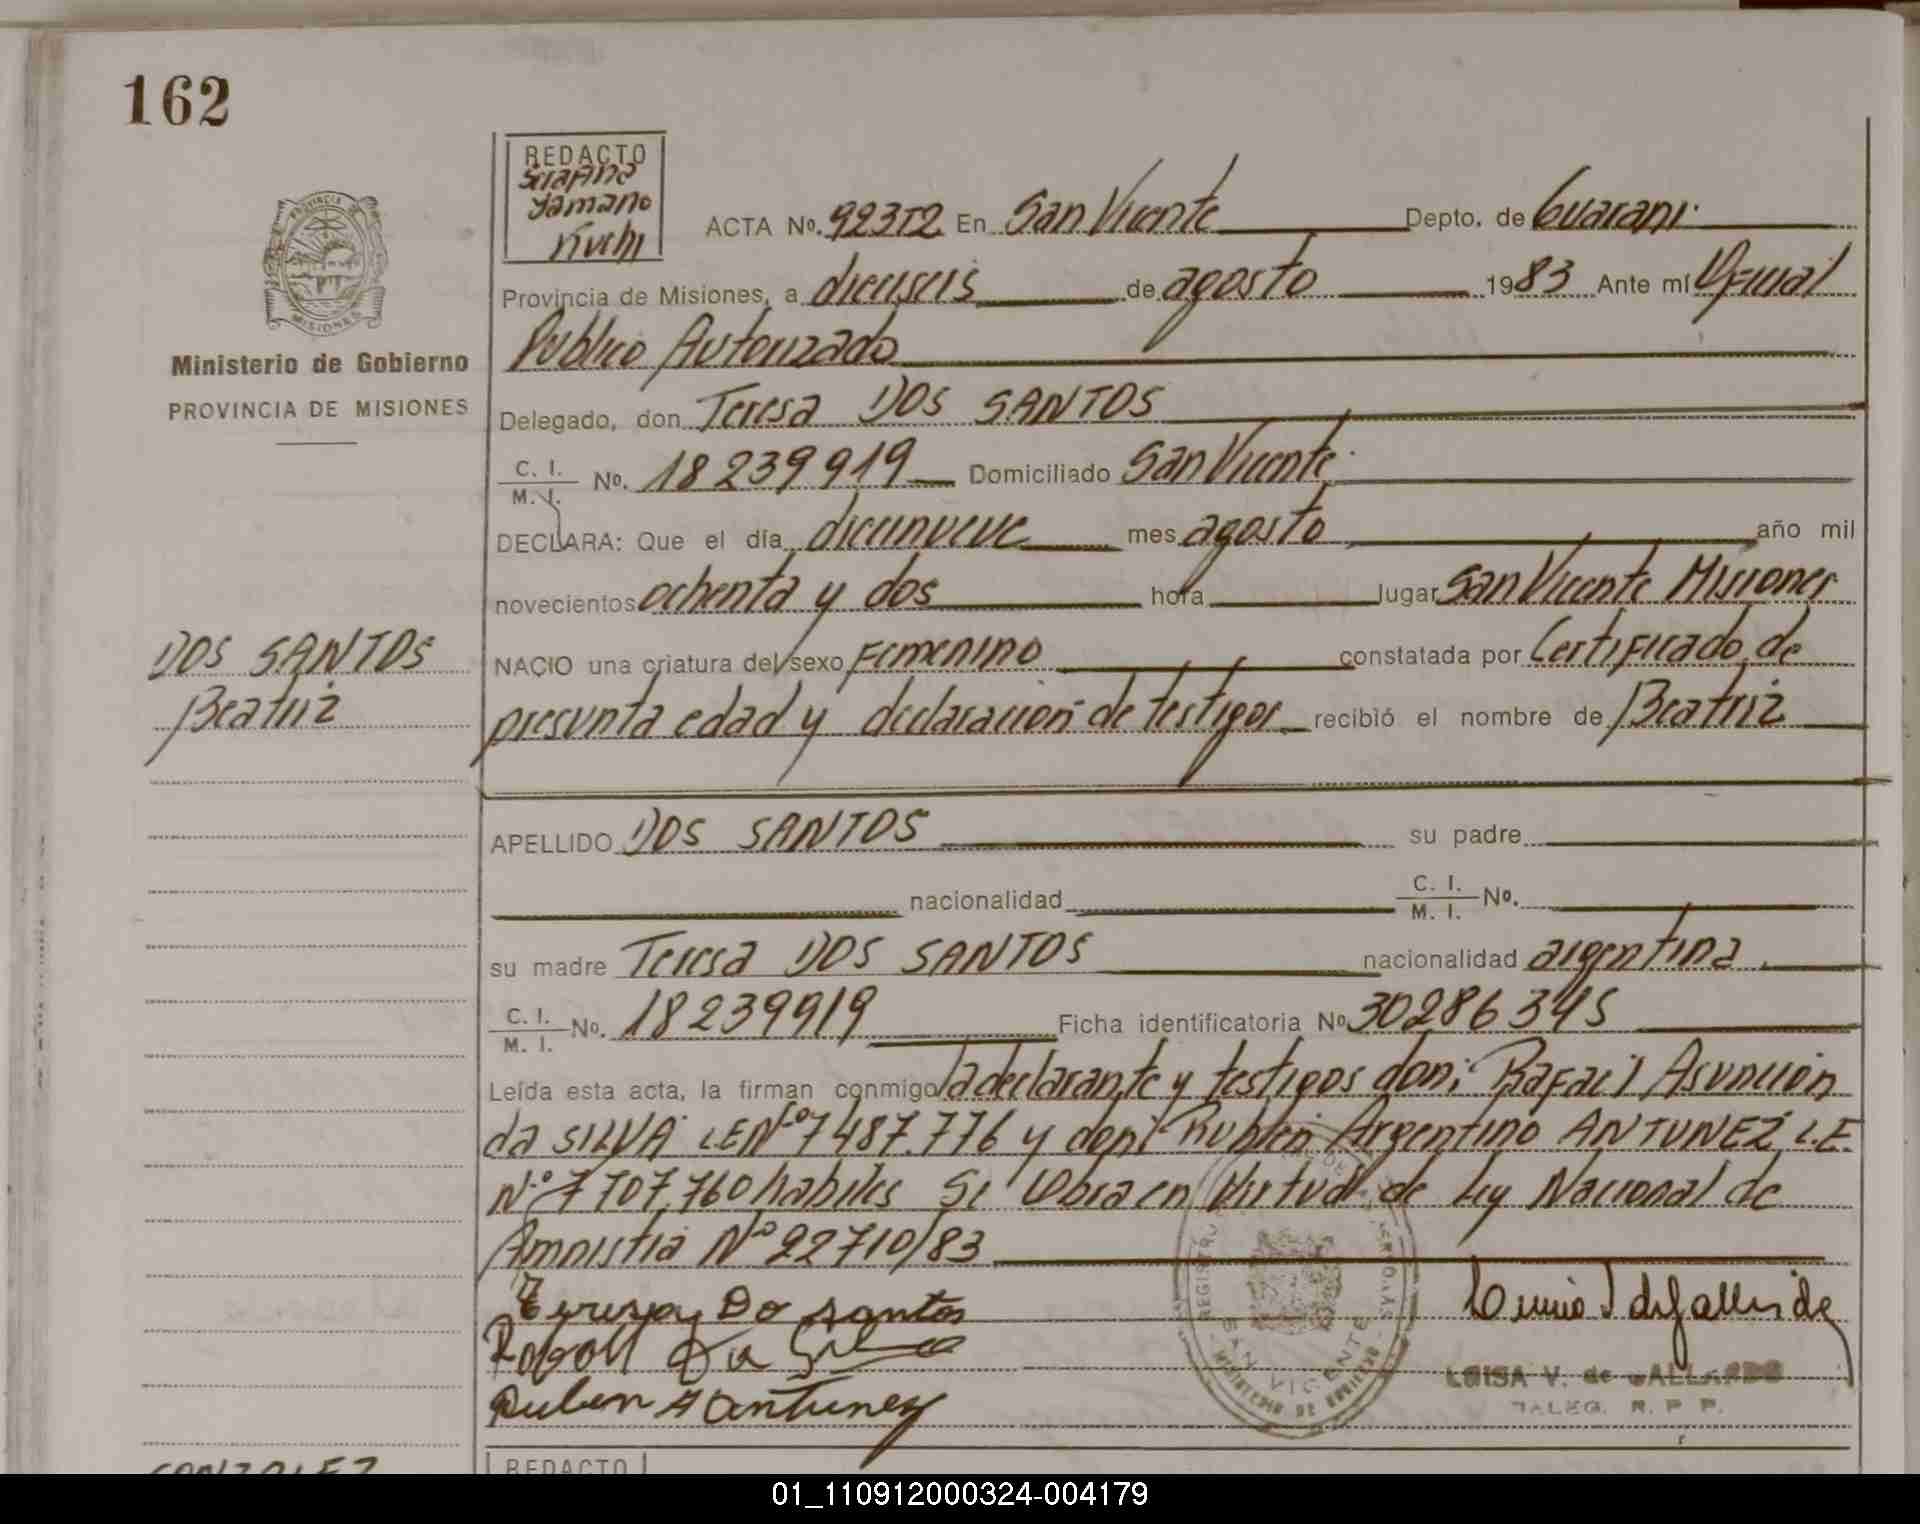 162
REDACTO
Serafina
Yamano
Kuchi
PROVINCIA DE
MISIONES
Ministerio de Gobierno
PROVINCIA DE MISIONES
DOS SANTOS
Beatriz
ACTA No. 923T2 En San Vicente Depto. de Guarani
Provincia de Misiones, a dieciseis de agosto 1983 Ante mí Oficial
Publico Autorizado
Delegado, don Teresa DOS SANTOS
C. I.
M. I. No. 18239919 Domiciliado San Vicente
DECLARA: Que el día diecinueve mes agosto año mil
novecientos ochenta y dos hora lugar San Vicente Misiones
NACIO una criatura del sexo Femenino constatada por Certificado de
presunta edad y declaracion de testigos recibió el nombre de Beatriz
APELLIDO DOS SANTOS su padre
nacionalidad C. I.
M. I. No.
su madre Teresa DOS SANTOS nacionalidad argentina
C. I.
M. I. No. 18239919 Ficha identificatoria No 30286345
Leída esta acta, la firman conmigo la declarante y testigos don: Rafael Asuncion
da SILVA LE Nº 7487.776 y don: Ruben Argentino ANTUNEZ L.E.
Nº 7707.760 habiles Se Obra en Virtud de Ley Nacional de
Amnistia Nº 22710/83
Teresa Do santos
Rafael Da Silva
Ruben A Antunez
SAN VICENTE
LUISA V. de GALLARDO
DALEG. R. P. P.
REDACTO
GONZALEZ
01_110912000324-004179